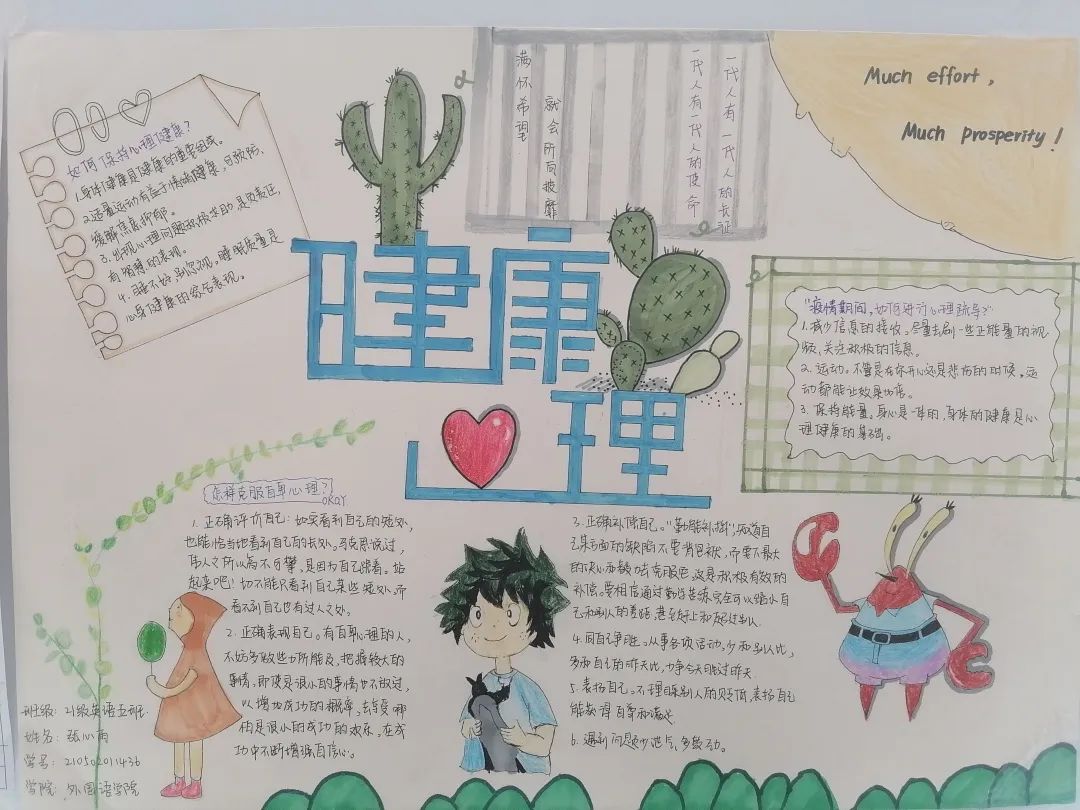 如何保持心理健康?
1.身体健康是健康的重要组成。
2.适量运动有益于情绪健康,可预防、
缓解焦虑抑郁。
3.出现心理问题积极求助,是负责任、
有智慧的表现。
4.睡不好,别忽视,睡眠质量是
心身健康的综合表现。
满怀希望
就会所向披靡
一代人有一代人的使命
一代人有一代人的长征
Much effort,
Much prosperity!
健康
心理
"疫情期间,如何进行心理疏导?"
1.减少信息的接收。尽量去刷一些正能量的视
频,关注积极的信息。
2.运动。不管是在你开心还是悲伤的时候,运
动都能让效果加倍。
3.保持能量。身心是一体的,身体的健康是心
理健康的基础。
怎样克服自卑心理?
OKAY
1.正确评价自己:如实看到自己的短处,
也能恰当地看到自己的长处。马克思说过,
伟人之所以高不可攀,是因为自己跪着。站
起来吧!切不能只看到自己某些短处,而
看不到自己也有过人之处。
2.正确表现自己。有自卑心理的人,
不妨多做些力所能及、把握较大的
事情,即使是很小的事情也不放过,
以增加成功的概率,去享受哪
怕是很小的成功的欢乐,在成
功中不断增强自信心。
3.正确补偿自己。"勤能补拙",知道自
己某方面的缺陷不要背包袱,而要以最大
的决心和毅力去克服它,这是积极有效的
补偿。要相信通过勤学苦练完全可以缩小自
己和别人的差距,甚至赶上和超过别人。
4.同自己争胜。从事各项活动,少和别人比,
多和自己的昨天比,力争今天胜过昨天。
5.表扬自己。不理睬别人的贬值,表扬自己
能获得自尊和满足。
6.遇到问题少泄气,多鼓劲。
班级:21级英语五班
姓名:张心雨
学号:21050201436
学院:外国语学院